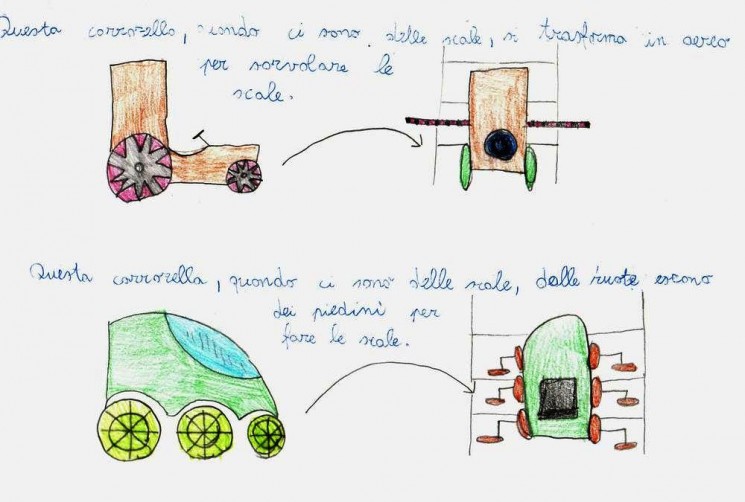 Questa carrozella, quando ci sono delle scale, si trasforma in aereo
per sorvolare le
scale.
Questa carrozella, quando ci sono delle scale, dalle ruote escono
dei piedini per
fare le scale.